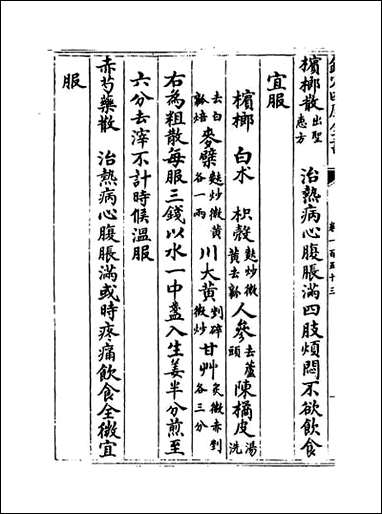 檳榔散出聖惠方 治熱病心腹脹滿四肢煩悶不欲飲食
宜服
檳榔 白术 枳殻麩炒微黄去瓤 人參去蘆頭 陳橘皮湯洗
去白瓤焙 麥櫱麩炒微黄各一兩 川大黄剉碎微炒 甘艸炙微赤剉各三分
右為粗散每服三錢以水一中盞入生姜半分煎至
六分去滓不計時候温服
赤芍藥散 治熱病心腹脹滿或時疼痛飲食全微宜
服
卷一百五十三